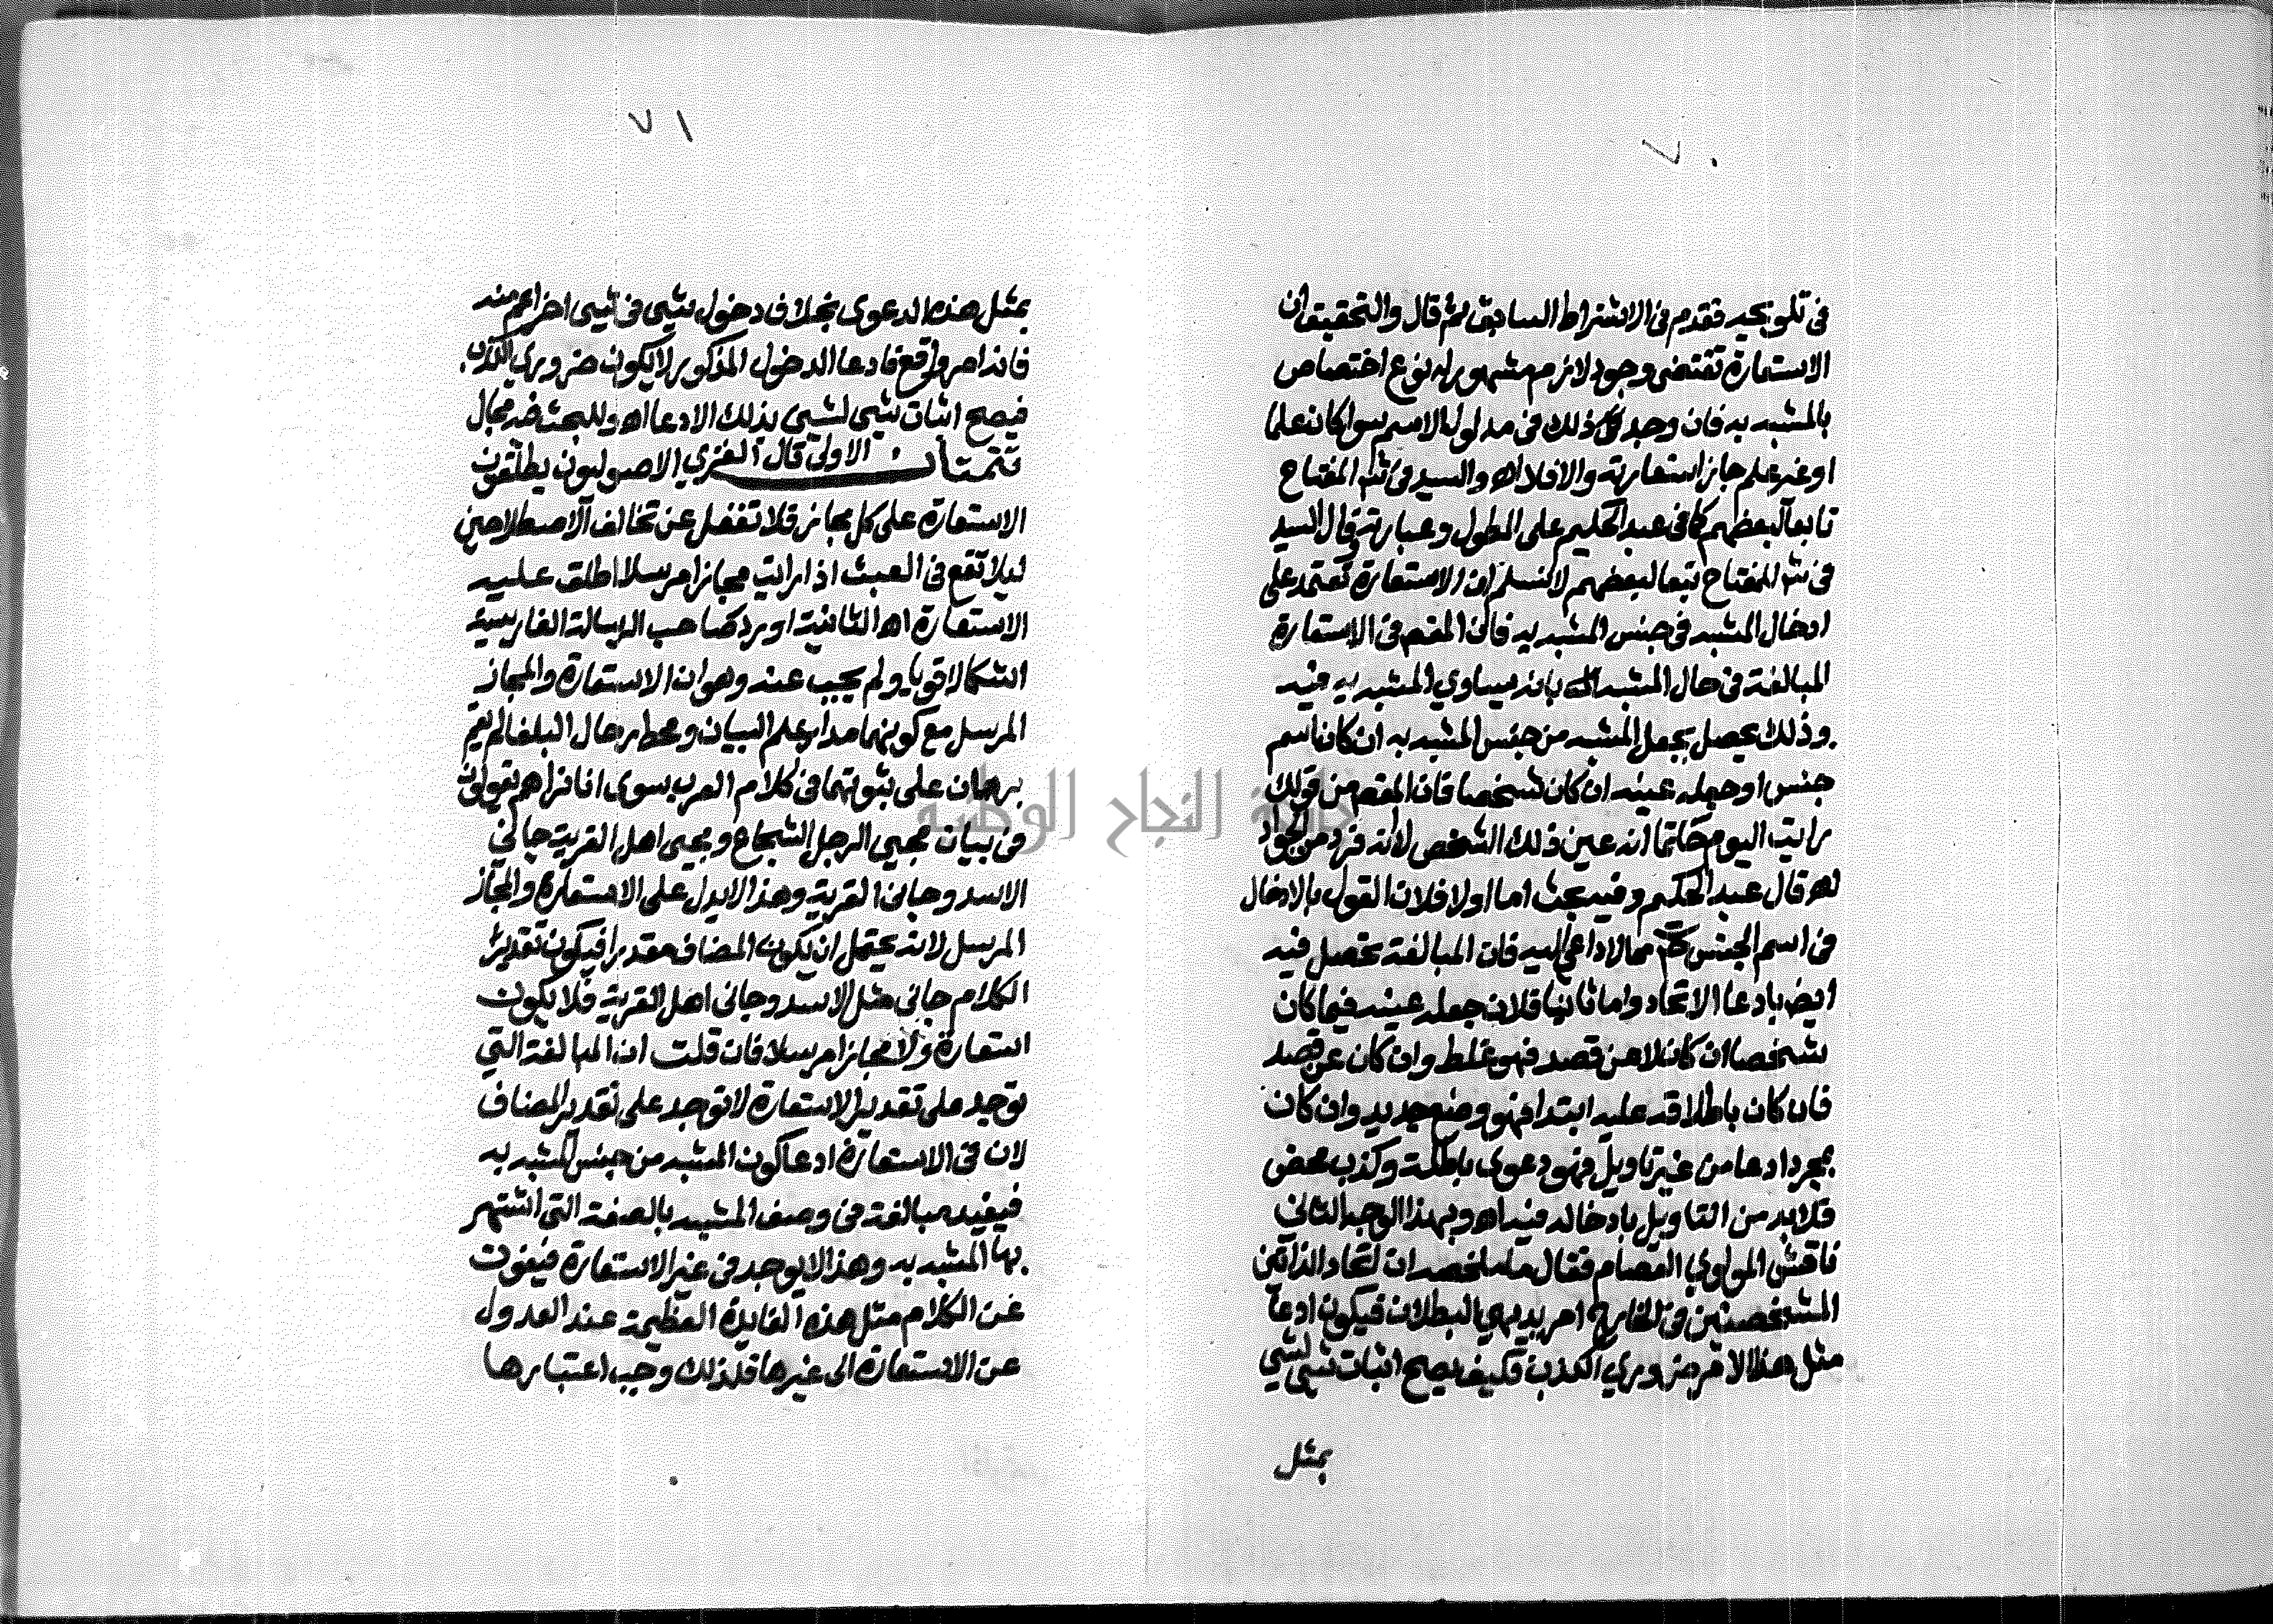 ٧٠
في تلويحه فقدم في الاشتراط السابق ثم قال والتحقيق ان
الاستعارة تقتضي وجود لازم مشهور له نوع اختصاص
بالمشبه به فان وجد ذلك في مدلول الاسم سوا كان علما
او غير علم جاز استعارته والا فلا اه والسيد في شر المفتاح
تابعا لبعضهم كما في عبد الحكيم على المطول وعبارته قال السيد
في شر المفتاح تبعا لبعضهم لا نسلم ان الاستعارة تعتمد على
ادخال المشبه في جنس المشبه به فان المقص في الاستعارة
المبالغة في حال المشبه بانه يساوي المشبه به فيه
وذلك يحصل بجعل المشبه من جنس المشبه به ان كان اسم
جنس او جعله عينه ان كان شخصا فان المقص من قولك
رايت اليوم حاتما انه عين ذلك الشخص لا انه فرد من الجواد
اه قال عبد الحكيم وفيه بحث اما اولا فلان القول بالادخال
في اسم الجنس مما لا داعي اليه فان المبالغة تحصل فيه
ايض بادعا الاتحاد واما ثانيا فلان جعله عينه فيما كان
شخصا ان كان لا عن قصد فهو غلط وان كان عن قصد
فان كان باطلاقه عليه ابتدا فهو وضع جديد وان كان
بمجرد ادعا من غير تاويل فهو دعوى باطلة وكذب محض
فلا بد من التاويل بادخاله فيه اه وبهذا الوجه الثاني
ناقش المولوي العصام فقال ما ملخصه ان اتحاد الذاتين
المشخصتين في الخارج امر بديهي البطلان فيكون ادعا
مثل هذا الامر ضروري الكذب فكيف يصح اثبات شيى لشيى
بمثل
٧١
بمثل هذه الدعوى بخلاف دخول شيى في شيى اخر اعم منه
فانه امر واقع فادعا الدخول المذكور لا يكون ضروري الكذب
فيصح اثبات شيى لشيى بذلك الادعا اه وللبحث فيه مجال
تتمتان الاولى قال الغزي الاصوليون يطلقون
الاستعارة على كل مجاز فلا تغفل عن تخالف الاصطلاحين
ليلا تقع في العبث اذا رايت مجازا مرسلا اطلق عليه
الاستعارة اه الثانية اورد صاحب الرسالة الفارسية
اشكالا قويا ولم يجب عنه وهو ان الاستعارة والمجاز
المرسل مع كونهما مدار علم البيان ومحط رحال البلغا لم يقم
برهان على ثبوتهما في كلام العرب سوى انا نراهم يقولون
في بيان مجيى الرجل الشجاع ومجيى اهل القرية جاني
الاسد وجاني القرية وهذا لا يدل على الاستعارة والمجاز
المرسل لانه يحتمل ان يكون المضاف مقدرا فيكون تقدير
الكلام جاني مثل الاسد وجاني اهل القرية فلا يكون
استعارة ولا مجازا مرسلا فان قلت ان المبالغة التي
توجد على تقدير الاستعارة لا توجد على تقدير المضاف
لان في الاستعارة ادعا كون المشبه من جنس المشبه به
فيفيد مبالغة في وصف المشبه بالصفة التي اشتهر
بها المشبه به وهذا لا يوجد في غير الاستعارة فيفوت
عن الكلام مثل هذه الفايدة العظيمة عند العدول
عن الاستعارة الى غيرها فلذلك وجب اعتبارها
جامعة النجاح الوطنية